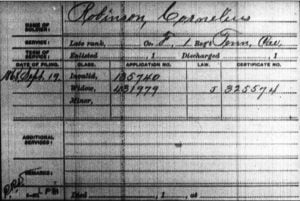 Robinson, Cornelius
NAME OF SOLDIER:
SERVICE: Late rank, Co. F, 1 Reg't Tenn. Cav.
TERM OF SERVICE: Enlisted , 1 Discharged , 1
DATE OF FILING. CLASS. APPLICATION NO. LAW. CERTIFICATE NO.
Sept. 19 Invalid, 135740
Widow, 325574
Minor,
ADDITIONAL SERVICES:
REMARKS:
Died , 1 , at